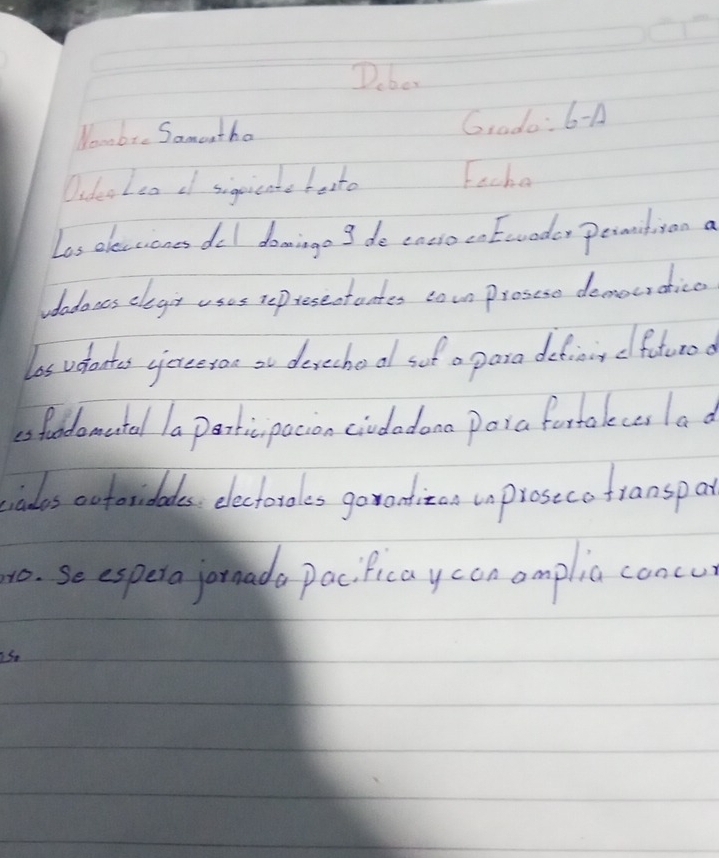 Deber
Nombre Samantha Grado: 6-A
Orden Lea el siguiente texto Fecha
Las elecciones del domingo 9 de enero en Ecuador permitiran a
udadanos elegir usus representantes en un proseso democratico
Los votantes ejerceran su derecho al suf o para definir el futuro d
es fundamental la participacion ciudadana para fortalecer la d
ciados autoridades electorales garantizan un proseco transpar
ro. Se espera jornada pacifica y con amplia concur
as.